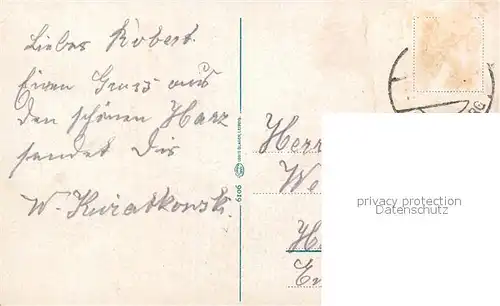 Lieber Robert.
Einen Gruss aus
den schönen Harz
sendet Dir
W. Kwiatkowski.
6106
Herr
We
H
privacy protection
Datenschutz